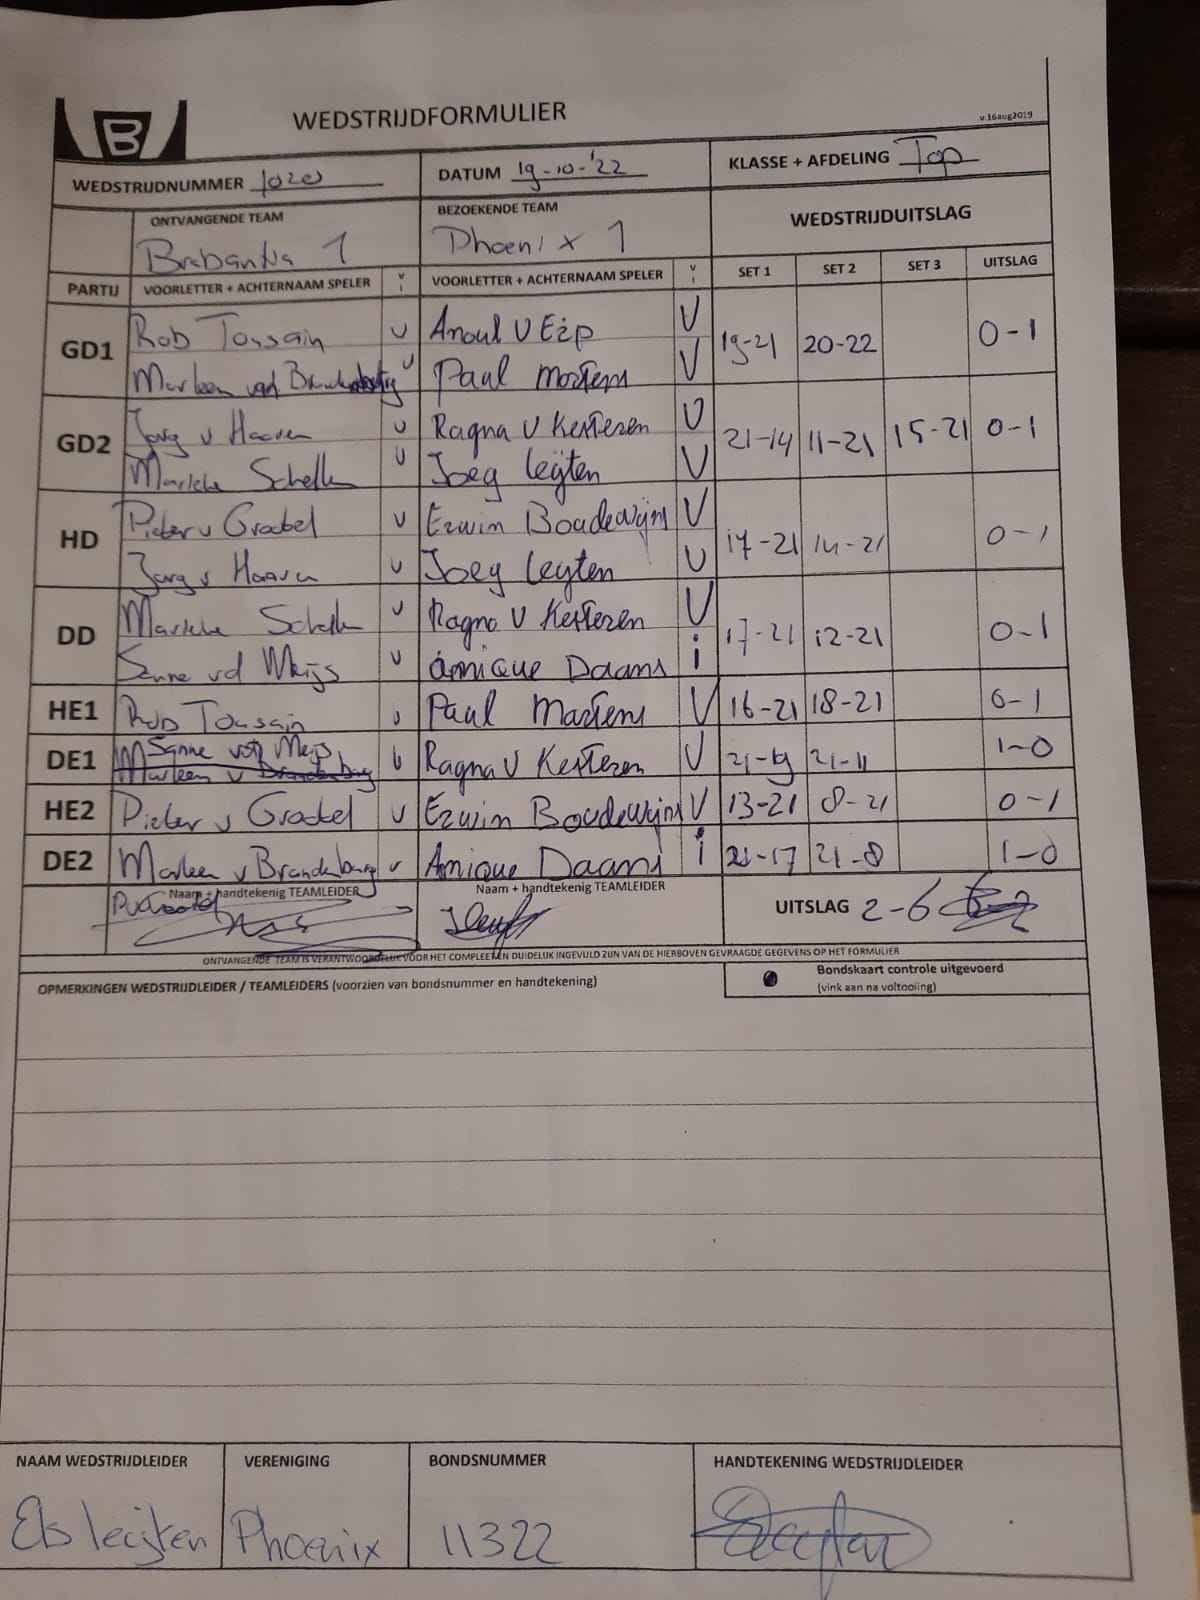 B
WEDSTRIJDFORMULIER
v.16aug2019
WEDSTRIJDNUMMER 1020 DATUM 19-10-'22 KLASSE + AFDELING Top
ONTVANGENDE TEAM BEZOEKENDE TEAM WEDSTRIJDUITSLAG
Brabantia 1 Phoenix 1
PARTIJ VOORLETTER + ACHTERNAAM SPELER V I VOORLETTER + ACHTERNAAM SPELER V I SET 1 SET 2 SET 3 UITSLAG
GD1 Rob Toussain v Anoul v Eijp V 19-21 20-22 0-1
Marleen van Brandenburg v Paul Martens V
GD2 Jorg v Haaren v Ragna v Kesteren V 21-14 11-21 15-21 0-1
Marieke Schellen v Joeg Leijten V
HD Pieter v Gract v Erwin Boudewijns V 17-21 14-21 0-1
Jorg v Haaren v Joeg Leijten V
DD Marieke Schellen v Ragna v Kesteren V 17-21 12-21 0-1
Sanne vd Meijs v Amique Daams i
HE1 Rob Toussain v Paul Martens V 16-21 18-21 0-1
DE1 Sanne vd Meijs v Ragna v Kesteren V 21-19 21-11 1-0
Marleen v Brandenburg
HE2 Pieter v v Erwin Boudewijns V 13-21 8-21 0-1
DE2 Marleen v Brandenburg v Amique Daams i 21-17 21-8 1-0
Naam + handtekenig TEAMLEIDER Naam + handtekenig TEAMLEIDER UITSLAG 2-6
ONTVANGENDE TEAM IS VERANTWOORDELIJK VOOR HET COMPLEET EN DUIDELIJK INGEVULD ZIJN VAN DE HIERBOVEN GEVRAAGDE GEGEVENS OP HET FORMULIER
OPMERKINGEN WEDSTRIJDLEIDER / TEAMLEIDERS (voorzien van bondsnummer en handtekening)
Bondskaart controle uitgevoerd
(vink aan na voltooiing)
NAAM WEDSTRIJDLEIDER VERENIGING BONDSNUMMER HANDTEKENING WEDSTRIJDLEIDER
Els Leijten Phoenix 11322